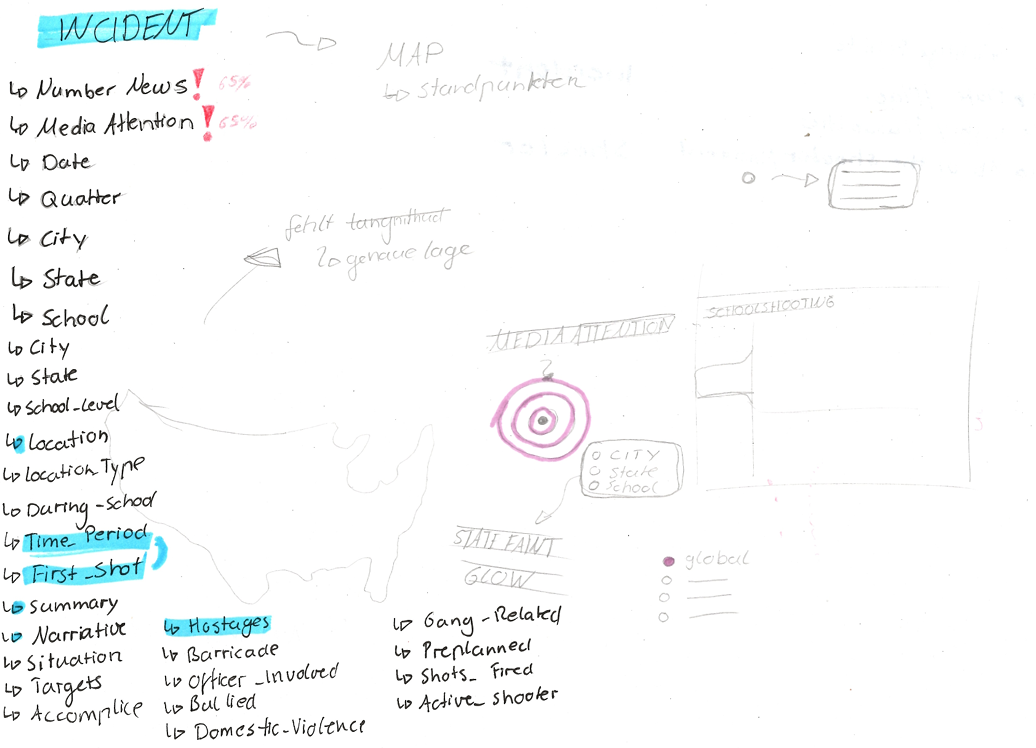 INCIDENT
Number News! 65%
Media Attention! 65%
Date
Quatter
City
State
School
City
State
School_Level
Location
Location Type
During-School
Time_Period
First_Shot
Summary
Narriative
Situation
Targets
Accomplice
Hostages
Barricade
Officer_Involved
Bullied
Domestic-Violence
Gang-Related
Preplanned
Shots_Fired
Active_shooter
MAP
standpunkten
fehlt
genaue lage
MEDIA ATTENTION
CITY
State
School
STATE FAINT
GLOW
SCHOOLSHOOTING
global